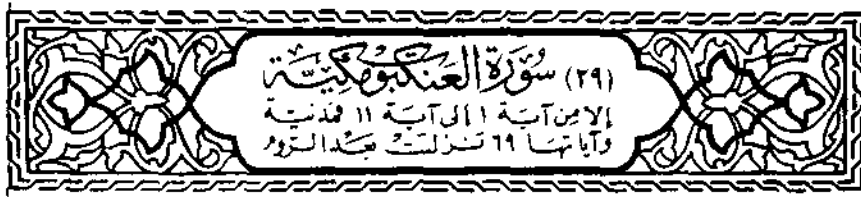 (٢٩) سُورَة العَنكبُوت مَكيَّة
إلا من آية ١ إلى آية ١١ فمدنية
وآياتها ٦٩ نزلت بعد الروم